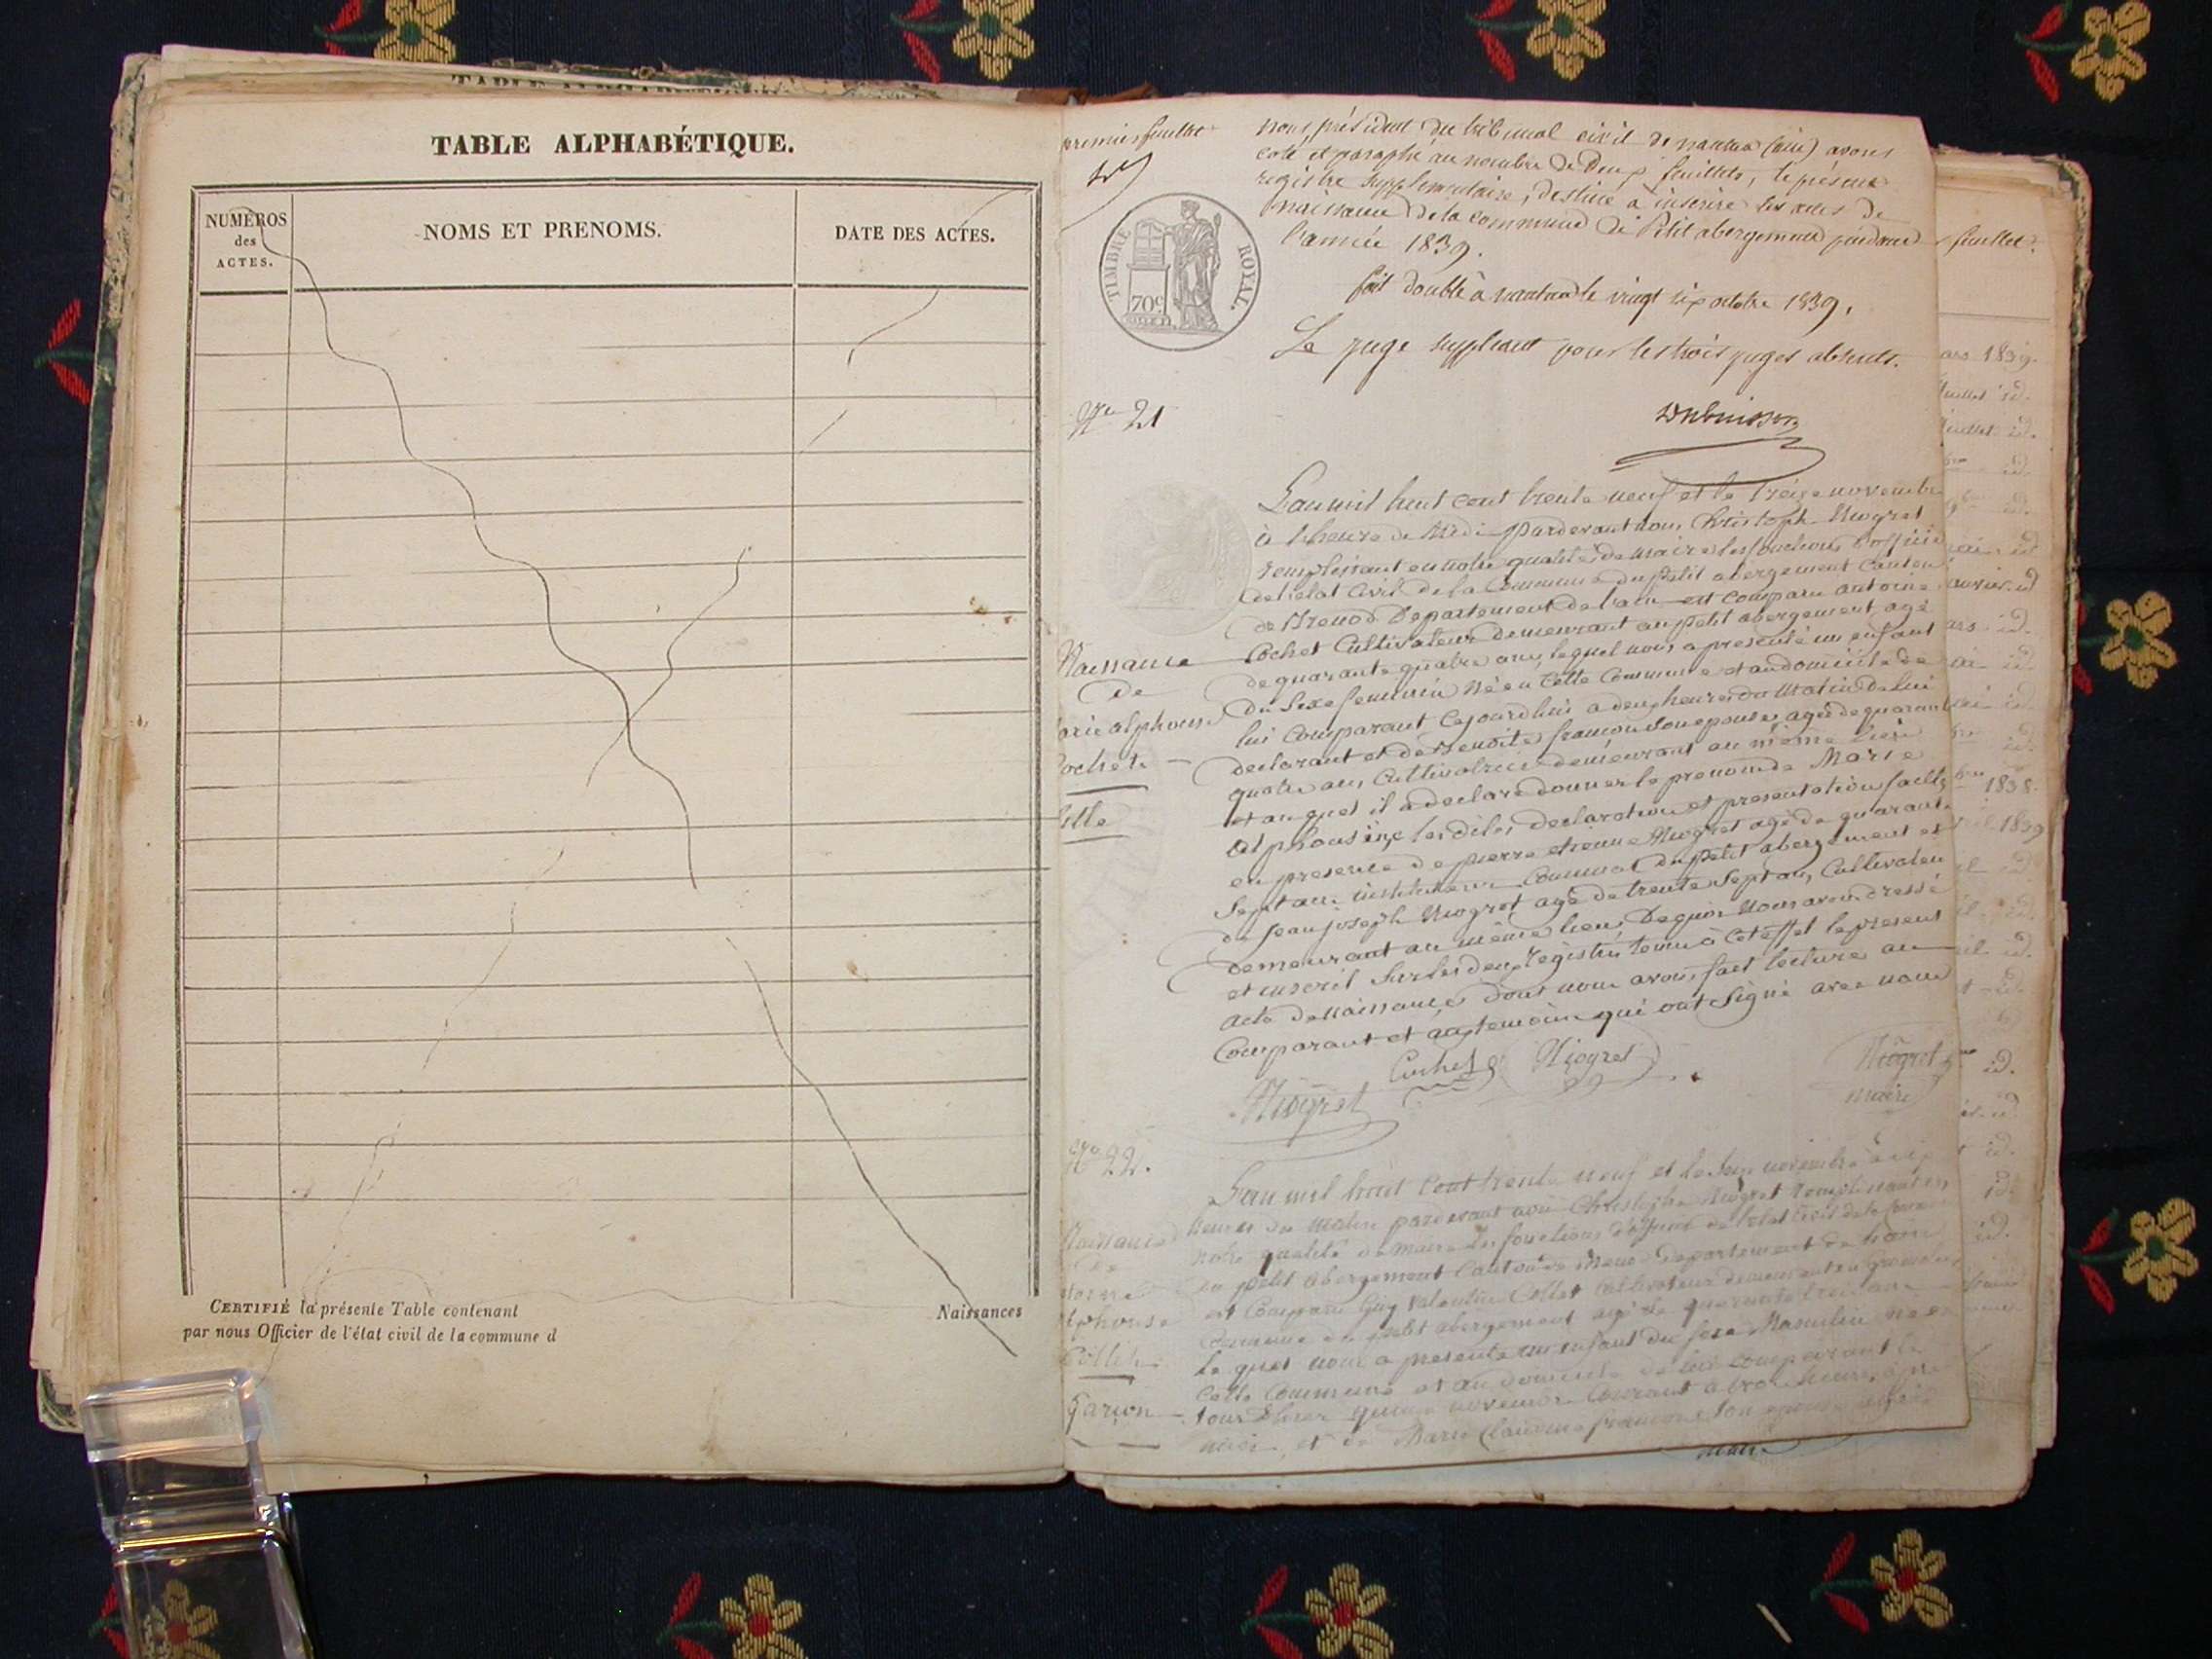 TABLE ALPHABÉTIQUE.
NUMÉROS
des
ACTES.
NOMS ET PRENOMS.
DATE DES ACTES.
CERTIFIÉ la présente Table contenant Naissances
par nous Officier de l'état civil de la commune d
premier feuillet
nous, président du tribunal civil de nantua (ain) avons
coté et paraphé au nombre de Deux feuillets, le présent
registre supplémentaire, destiné à inscrire les actes de
naissance de la commune de Petit abergement pendant
l'année 1839.
TIMBRE ROYAL.
70c.
fait double à nantua le vingt six octobre 1839.
Le juge suppléant pour les trois juges absents.
No 21
Naissance
de
arie alphonsi
ochet
fille
L'an mil huit cent trente neuf et le treize novembre
à l'heure de Midi pardevant nous Christophe Niogret
remplissant en notre qualité de maire les fonctions d'officie
de l'etat Civil de la Commune du petit abergement Canton
de Brenod Departement de l'ain est comparu antoine
Cochet Cultivateur demeurant au petit abergement agé
de quarante quatre ans, lequel nous a presenté un enfant
du Sexe feminin Né en Cette Commune et au domicile de
lui Comparant Cejourdhui a deux heures du Matin de lui
declarant et de Benoite françon son epouse agée de quarant
quatre ans, Cultivatrice demeurant au même lieu
et auquel il a declaré donner le prenom de Marie
alphonsine les dites declaration et presentation faites
en presence de pierre etienne Niogret agé de quarante
Sept ans instituteur Communal du petit abergement et
de Jean joseph Niogret agé de trente Sept ans, Cultivateu
demeurant au même lieu, De quoi Nous avons dressé
et inscrit Sur les deux régistres tenus à Cet effet le present
acte de naissance, dont nous avons fait lecture au
Comparant et aux temoins qui ont Signé avec nous
Cochet Niogret
Niogret
Niogret
maire
No 22.
Naissance
de
alphonse
Collet
Garçon
L'an mil huit Cent trente neuf et le Seize novembre à
heures du matin pardevant nous Christophe Niogret remplissant en
notre qualité de maire les fonctions d'officier de l'etat Civil de la Comm
du petit abergement Canton de Brenod Departement de l'ain
est Comparu Guy Valentin Collet Cultivateur demeurant en
Commune du petit abergement agé de quarante trois ans
le quel nous a presenté un enfant du sexe Masculin né en
Cette Commune et au domicile de lui Comparant le
jour d'hier quinze novembre Courant à trois heures
midi, et de Marie Claudine françon son epouse agée
feuillet.
ars 1839.
juillet id.
id.
1838.
1839
id.
maire